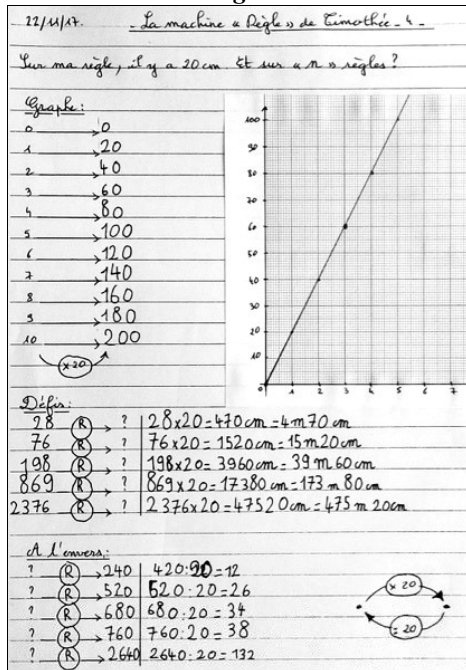 22/11/17. - La machine « Règle » de Timothée - 4 -
Sur ma règle, il y a 20 cm. Et sur « n » règles ?
Graphe :
0 → 0
1 → 20
2 → 40
3 → 60
4 → 80
5 → 100
6 → 120
7 → 140
8 → 160
9 → 180
10 → 200
×20
100
90
80
70
60
50
40
30
20
10
0 1 2 3 4 5 6 7
Défis :
28 R → ? 28×20=470cm=4m70cm
76 R → ? 76×20=1520cm=15m20cm
198 R → ? 198×20=3960cm=39m60cm
869 R → ? 869×20=17380cm=173m80cm
2376 R → ? 2376×20=47520cm=475m20cm
A l'envers :
? R → 240 420:20=12
? R → 520 520:20=26
? R → 680 680:20=34
? R → 760 760:20=38
? R → 2640 2640:20=132
× 20
: 20